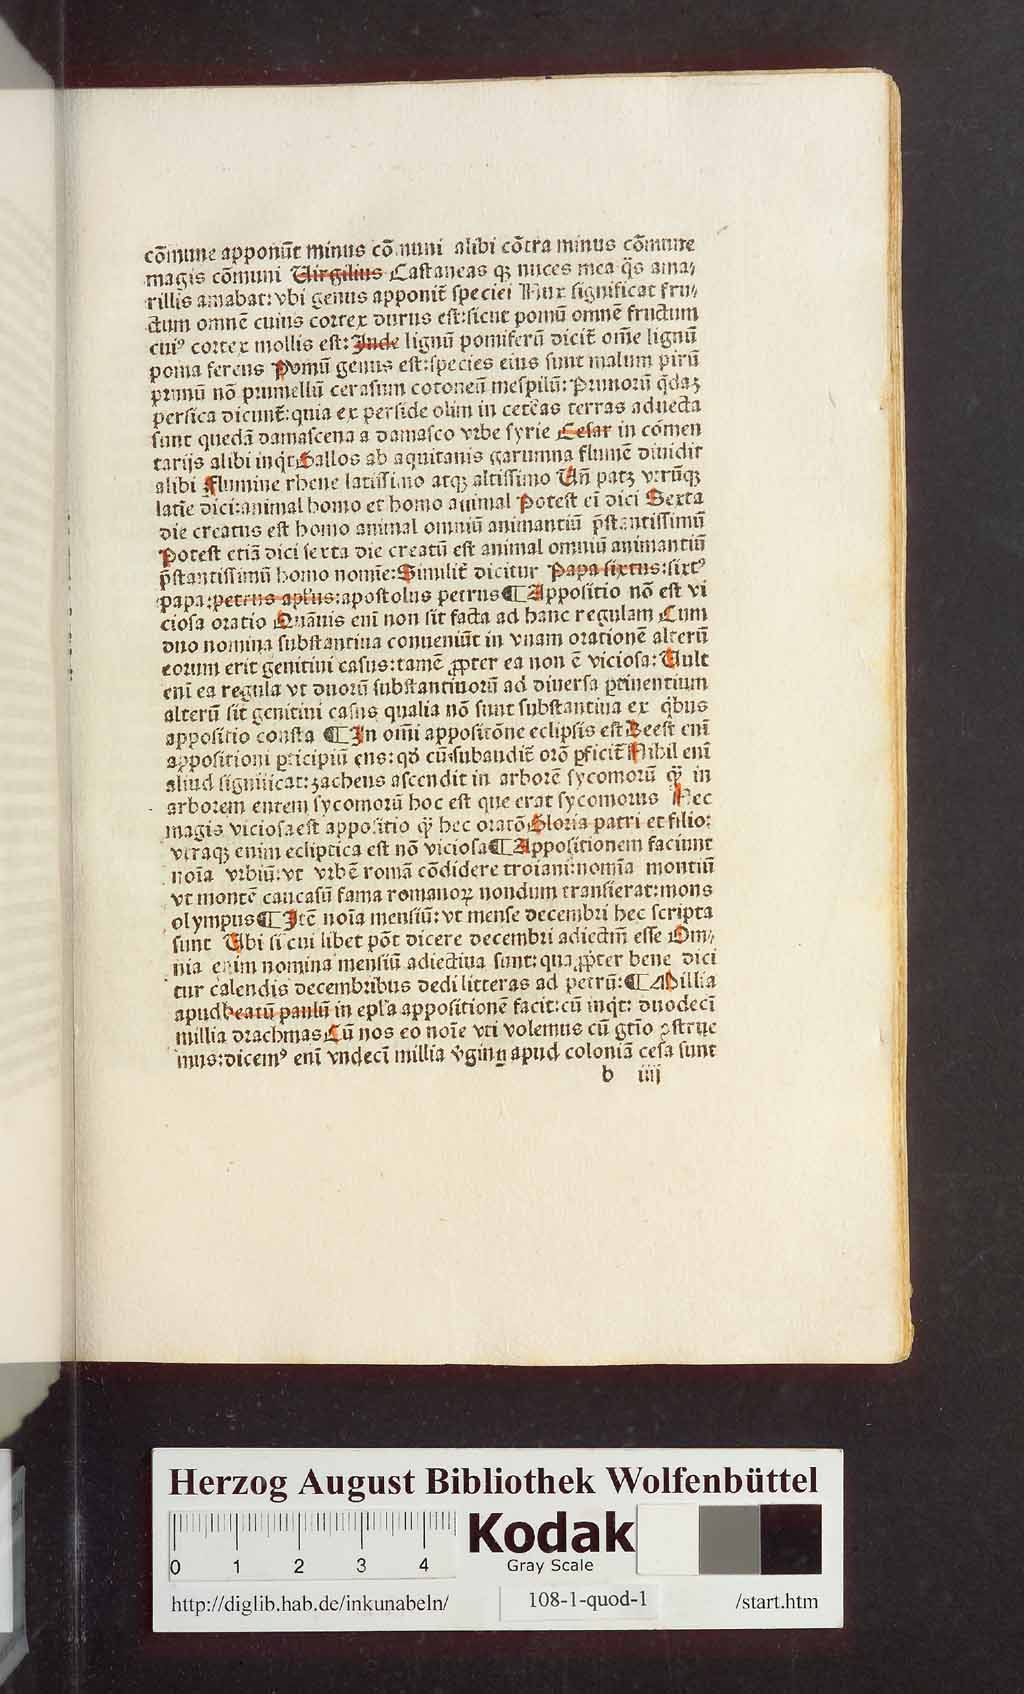 cōmune apponūt minus cō nuni alibi cōtra minus cōmune
magis cōmuni Uirgilius Castaneas qꝫ nuces mea q̄s ama⸗
rillis amabat: vbi genus apponit̄ speciei Nux significat fru⸗
ctum omnē cuius cortex durus est: sicut pomū omnē fructum
cuiꝰ cortex mollis est: Inde lignū pomiferū dicit̄ om̄e lignū
poma ferens Pomū genus est: species eius sunt malum pirū
prunū nō prumellū cerasum cotoneū mespilū: Prunorū q̄daꝫ
persica dicunt̄: quia ex perside olim in cet̄eas terras aduecta
sunt quedā damascena a damasco vrbe syrie Cesar in cōmen
tarijs alibi inq̄t Gallos ab aquitanis garumna flumē diuidit
alibi Flumine rhene latissimo atqꝫ altissimo Un̄ patꝫ vtrūqꝫ
latīe dici: animal homo et homo animal Potest ei̇̄ dici Sexta
die creatus est homo animal omniū animantiū p̄stantissimū
Potest etiā dici sexta die creatū est animal omniū animantiū
p̄stantissimū homo nomīe: Similit̄ dicitur Papa sixtus: sixtꝰ
papa: petrus apl̄us: apostolus petrus ¶ Appositio nō est vi
ciosa oratio Quāuis eni̇̄ non sit facta ad hanc regulam Cum
duo nomina substantiua conueniūt in vnam orationē alterū
eorum erit genitiui casus: tamē ꝓpter ea non ē viciosa: Uult
eni̇̄ ea regula vt duorū substantiuorū ad diuersa ꝑtinentium
alterū sit genitiui casus qualia nō sunt substantiua ex q̄bus
appositio consta ¶ In om̄i appositōne eclipsis est Deest eni̇̄
appositioni ꝑticipiū ens: qd̄ cū subaudit̄ orō ꝑficit̄ Nihil eni̇̄
aliud significat: zacheus ascendit in arborē sycomorū q̄ꝫ in
arborem entem sycomorū hoc est que erat sycomorus Nec
magis viciosa est appositio q̄ꝫ hec oratō Gloria patri et filio:
vtraqꝫ enim ecliptica est nō viciosa ¶ Appositionem faciunt
noīa vrbiū: vt vrbē romā cōdidere troiani: nomīa montiū
vt montē caucasū fama romanoꝝ nondum transierat: mons
olympus ¶ Itē noīa mensiū: vt mense decembri hec scripta
sunt Ubi si cui libet pōt dicere decembri adiectm̄ esse Om⸗
nia enim nomina mensiū adiectiua sunt: qua ꝓpter bene dici
tur calendis decembribus dedi litteras ad petrū: ¶ Millia
apud beatū paulū in epl̄a appositionē facit: cū inq̄t: duodecī
millia drachmas Cū nos eo noīe vti volemus cū gtīo ꝯstrue
mus: dicemꝰ eni̇̄ vndecī millia v̄ginū apud coloniā cesa sunt
b iiij
Herzog August Bibliothek Wolfenbüttel
0 1 2 3 4
Kodak
Gray Scale
http://diglib.hab.de/inkunabeln/ 108-1-quod-1 /start.htm